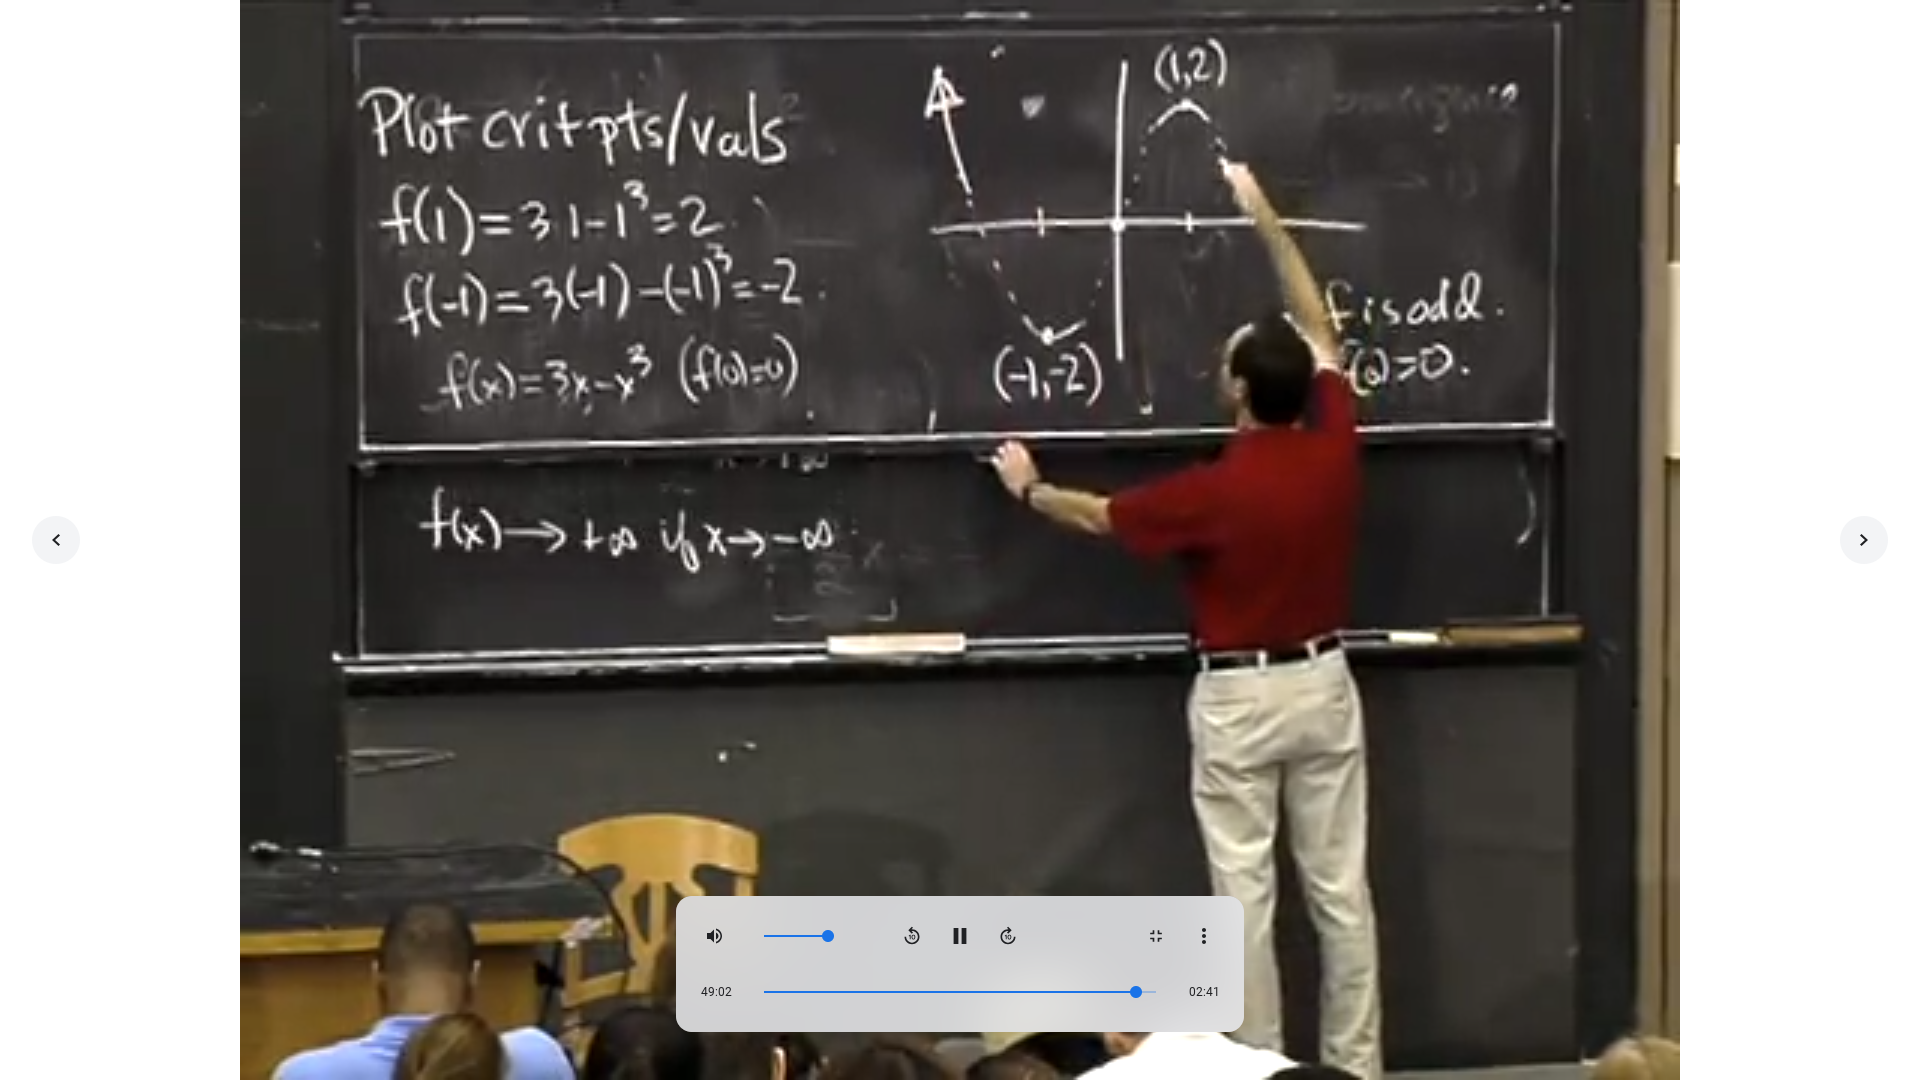 Plot crit pts/vals
f(1) = 3 1 - 1³ = 2
f(-1) = 3(-1) - (-1)³ = -2
f(x) = 3x - x³ (f(0)=0)
(1,2)
(-1,-2)
f is odd.
(0)=0.
f(x) → +∞ if x → -∞
49:02
02:41